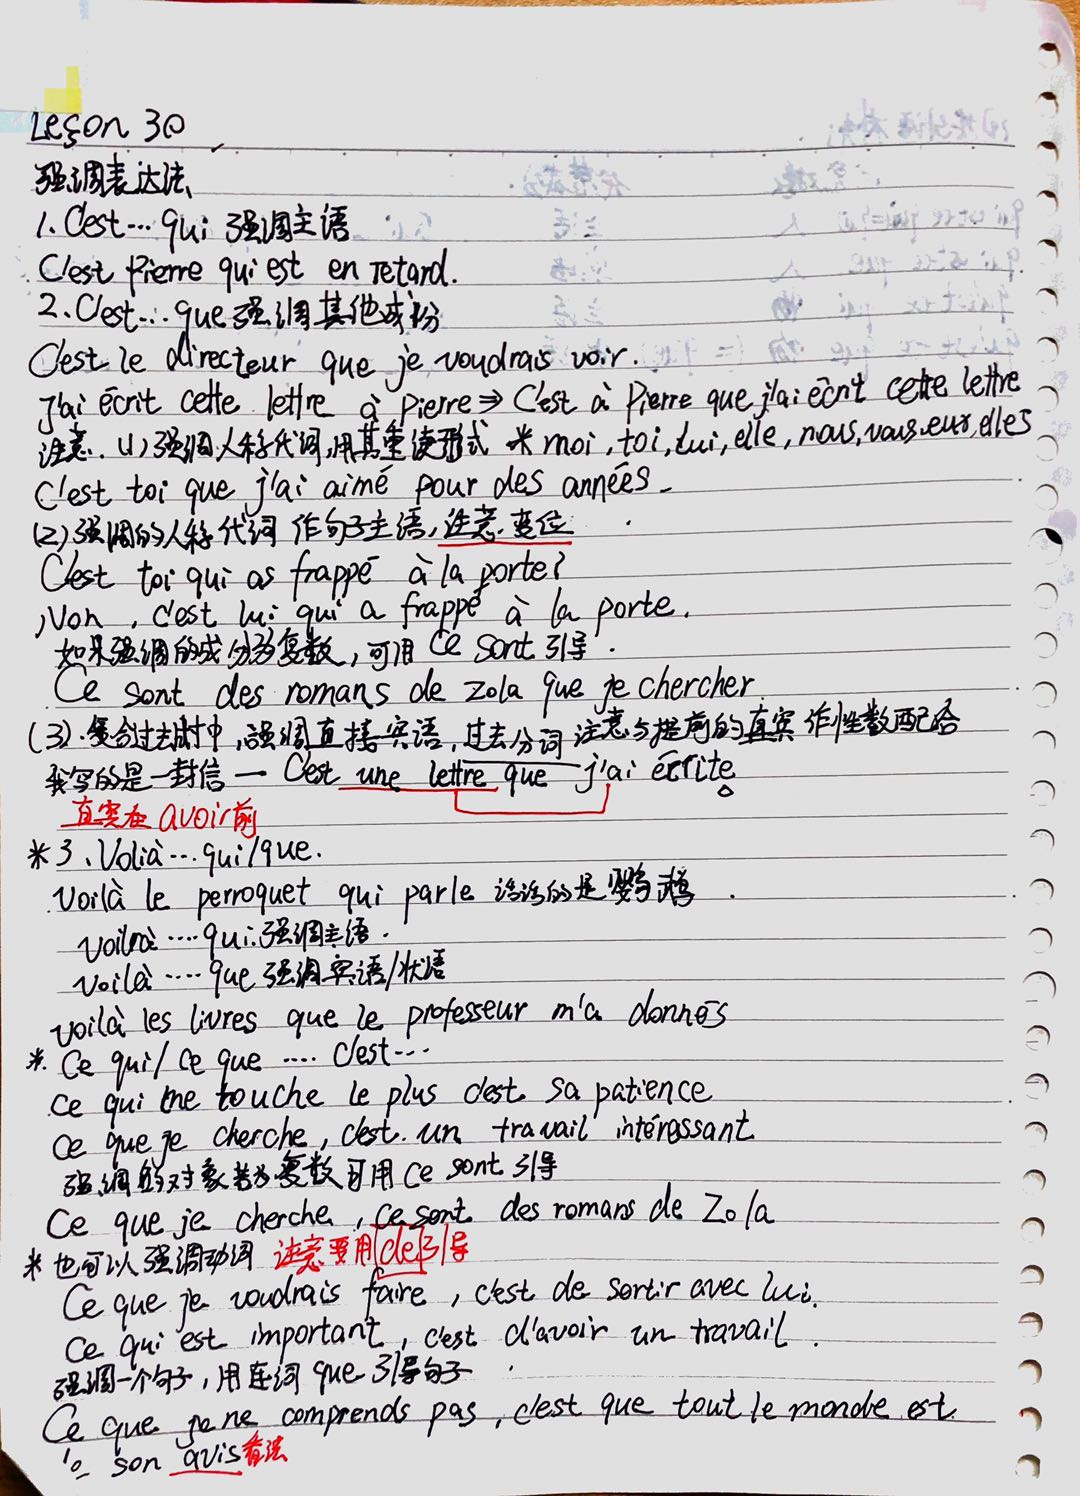 Leçon 30
强调表达法
1. C'est... qui 强调主语
C'est Pierre qui est en retard.
2. C'est... que 强调其他成份
C'est le directeur que je voudrais voir.
J'ai écrit cette lettre à Pierre ⇒ C'est à Pierre que j'ai écrit cette lettre
注意. (1) 强调人称代词,用其重读形式 * moi, toi, lui, elle, nous, vous, eux, elles
C'est toi que j'ai aimé pour des années.
(2) 强调的人称代词 作句子主语,注意变位
C'est toi qui as frappé à la porte?
Non, c'est lui qui a frappé à la porte.
如果强调的成分为复数,可用 ce sont 引导.
Ce sont des romans de Zola que je chercher.
(3). 复合过去时中,强调直接宾语,过去分词 注意与提前的直宾 作性数配合
我写的是一封信 — C'est une lettre que j'ai écrite。
直宾在 avoir前
* 3、Volià... qui/que.
Voilà le perroquet qui parle 说话的是鹦鹉.
voilà .... qui 强调主语.
voilà .... que 强调宾语/状语
voilà les livres que le professeur m'a donnés
*. Ce qui/ ce que .... c'est...
ce qui me touche le plus c'est sa patience
ce que je cherche, c'est un travail intéressant
强调的对象若为复数可用 ce sont 引导
Ce que je cherche, ce sont des romans de Zola
* 也可以强调动词 注意要用 de 引导
Ce que je voudrais faire, c'est de sortir avec lui.
Ce qui est important, c'est d'avoir un travail.
强调一个句子,用连词 que 引导句子
Ce que je ne comprends pas, c'est que tout le monde est
son avis 看法